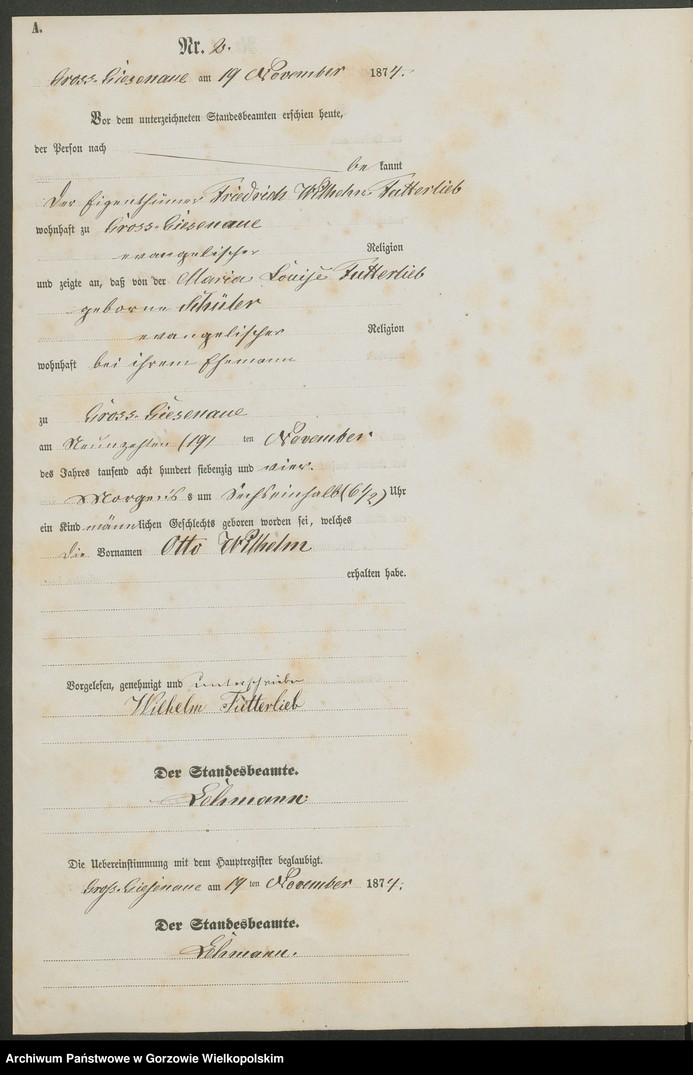 A.
Nr. 2.
Gross-Giesenaue am 19 November 1874.
Vor dem unterzeichneten Standesbeamten erschien heute,
der Person nach
be kannt
Der Eigenthümer Friedrich Wilhelm Futterlieb
wohnhaft zu Gross-Giesenaue
evangelischer Religion
und zeigte an, daß von der Maria Louise Futterlieb
geborne Schüler
evangelischer Religion
wohnhaft bei ihrem Ehemann
zu Gross-Giesenaue
am Neunzehten (19) ten November
des Jahres tausend acht hundert siebenzig und vier.
Morgens s um Sechseinhalb (6 1/2) Uhr
ein Kind männlichen Geschlechts geboren worden sei, welches
die Vornamen Otto Wilhelm
erhalten habe.
Vorgelesen, genehmigt und unterschrieben
Wilhelm Futterlieb
Der Standesbeamte.
Lehmann
Die Uebereinstimmung mit dem Hauptregister beglaubigt.
Gross-Giesenaue am 19 ten November 1874.
Der Standesbeamte.
Lehmann.
Archiwum Państwowe w Gorzowie Wielkopolskim